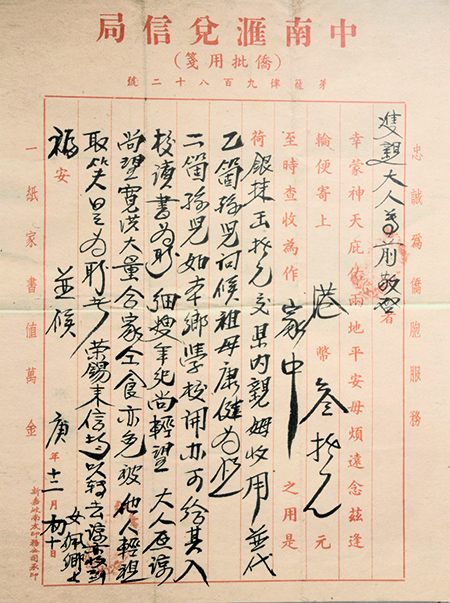 中南滙兌信局
(僑批用箋)
芽籠律九百八十二號
忠誠為僑胞服務
雙親大人尊前敬啓者
幸蒙神天庇佑兩地平安毋煩遠念茲逢
輪便寄上 港幣叁拾元 元
至時查收為作 家中 之用是
荷 銀抹 拾元交 内親姆收用並代
乙箇孫兒 候祖母康健為
二箇孫兒如本鄉學校開亦可給其入
校讀書為盼 細嫂年紀尚輕望 大人原諒
尚望寬洪大量合家仝食亦免被他輕視
取笑是為盼 榮錫來信均以轉去諒必收到
福安 並候 庚年十二月初十日
女佩卿上
一紙家書值萬金
新嘉坡南友印務公司承印